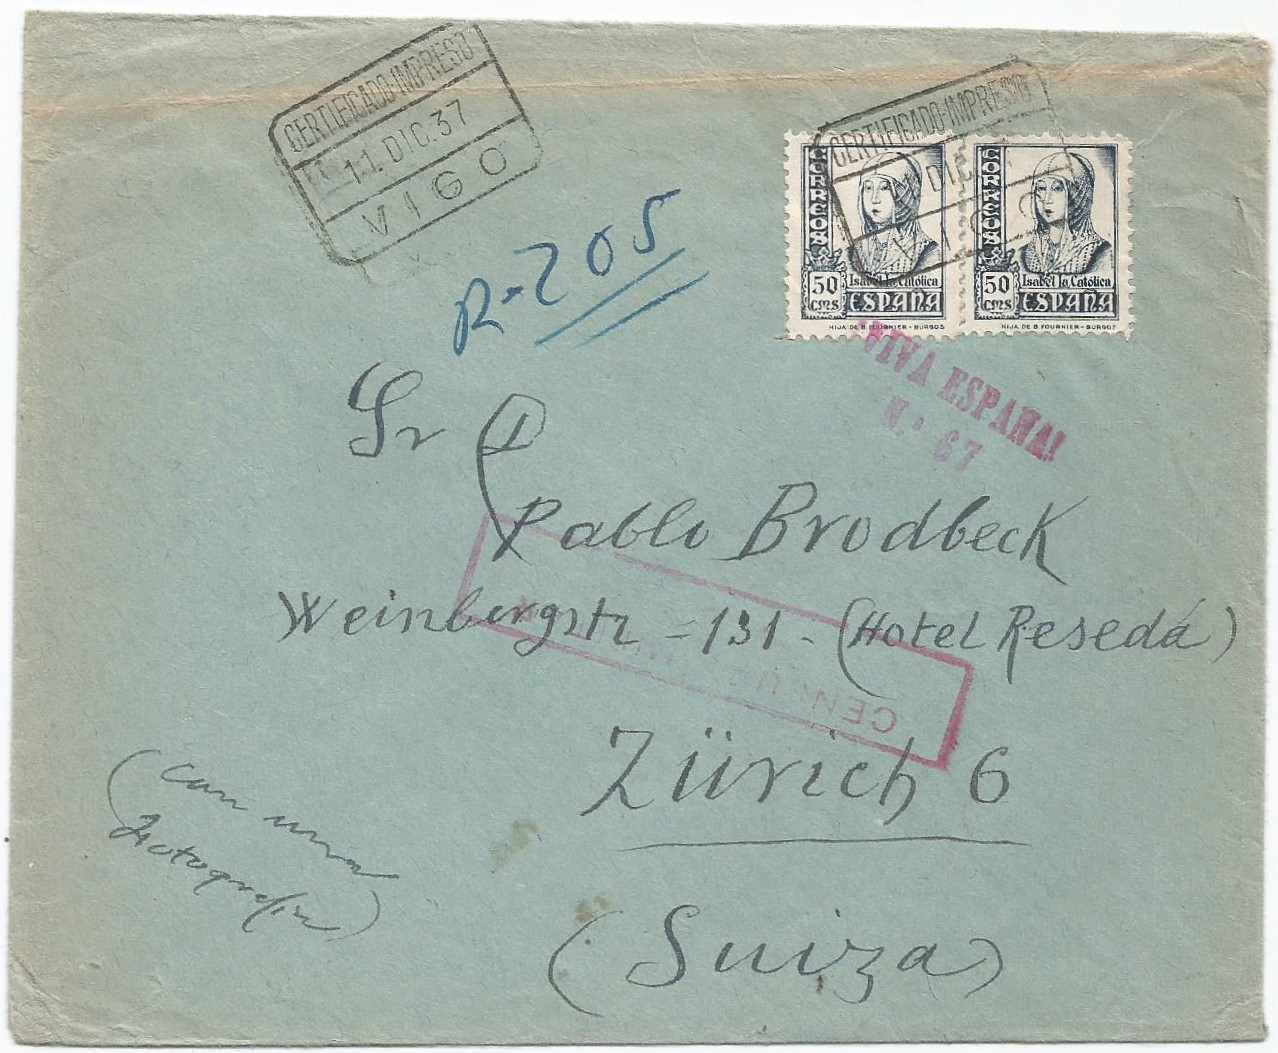 CERTIFICADO-IMPRESO
11. DIC. 37
VIGO
CERTIFICADO-IMPRESO
DIC.
CORREOS
50
CMS
Isabel la Católica
ESPAÑA
HIJA DE B. FOURNIER - BURGOS
CORREOS
50
CMS
Isabel la Católica
ESPAÑA
HIJA DE B. FOURNIER - BURGOS
R-205
¡VIVA ESPAÑA!
N.º 67
Sr D
Pablo Brodbeck
Weinbergstr - 131 - (Hotel Resedá)
Zürich 6
(Suiza)
(con una
Fotografia)